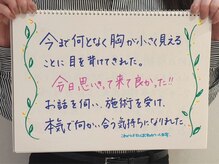 今まで何となく胸が小さく見える
ことに目を背けてきました。
今日思いきって来て良かった!!
お話を伺い、施術を受け、
本気で向か い合う気持ちになりました